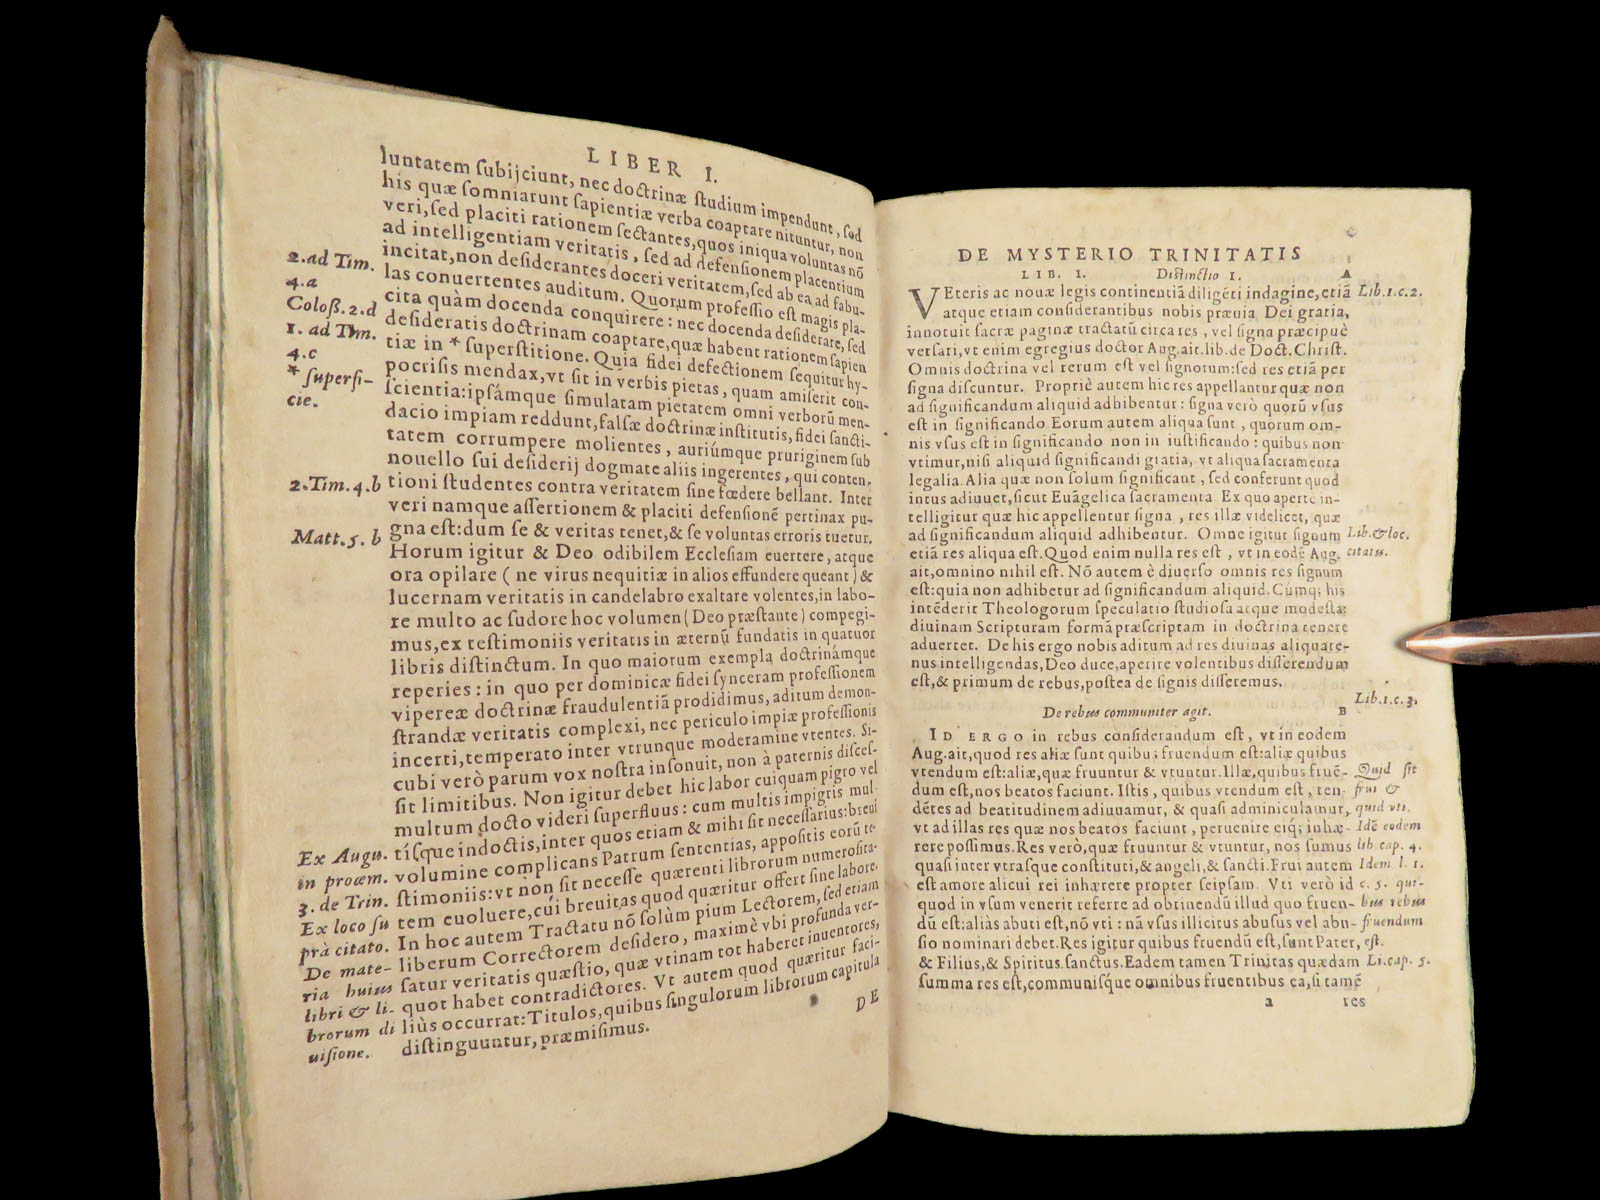 LIBER I.
luntatem ſubijciunt, nec doctrinæ ſtudium impendunt, ſed
his quæ ſomniarunt ſapientiæ verba coaptare nituntur, non
veri, ſed placiti rationem ſectantes, quos iniqua voluntas nō
ad intelligentiam veritatis, ſed ad defenſionem placentium
incitat, non deſiderantes doceri veritatem, ſed ab ea ad fabu-
las conuertentes auditum. Quorum profeſſio eſt magis pla-
cita quàm docenda conquirere: nec docenda deſiderare, ſed
deſideratis doctrinam coaptare, quæ habent rationem ſapien
tiæ in * ſuperſtitione. Quia fidei defectionem ſequitur hy-
pocriſis mendax, vt ſit in verbis pietas, quam amiſerit con-
ſcientia: ipſámque ſimulatam pietatem omni verborū men-
dacio impiam reddunt, falſæ doctrinæ inſtitutis, fidei ſancti-
tatem corrumpere molientes, auriúmque pruriginem ſub
nouello ſui deſiderij dogmate aliis ingerentes, qui conten,
tioni ſtudentes contra veritatem ſine fœdere bellant. Inter
veri namque aſſertionem & placiti defenſionē pertinax pu-
gna eſt: dum ſe & veritas tenet, & ſe voluntas erroris tuetur.
Horum igitur & Deo odibilem Eccleſiam euertere, atque
ora opilare ( ne virus nequitiæ in alios effundere queant ) &
lucernam veritatis in candelabro exaltare volentes, in labo-
re multo ac ſudore hoc volumen ( Deo præſtante ) compegi-
mus, ex teſtimoniis veritatis in æternū fundatis in quatuor
libris diſtinctum. In quo maiorum exempla doctrinámque
reperies: in quo per dominicæ fidei ſynceram profeſſionem
vipereæ doctrinæ fraudulentiā prodidimus, aditum demon-
ſtrandæ veritatis complexi, nec periculo impiæ profeſſionis
incerti, temperato inter vtrunque moderamine vtentes. Si-
cubi verò parum vox noſtra inſonuit, non à paternis diſceſ-
ſit limitibus. Non igitur debet hic labor cuiquam pigro vel
multum docto videri ſuperfluus: cum multis impigris mul-
tíſque indoctis, inter quos etiam & mihi ſit neceſſarius: breui
volumine complicans Patrum ſententias, appoſitis eorū te-
ſtimoniis: vt non ſit neceſſe quærenti librorum numeroſita-
tem euoluere, cúi breuitas quod quæritur offert ſine labore.
In hoc autem Tractatu nō ſolùm pium Lectorem, ſed etiam
liberum Correctorem deſidero, maximè vbi profunda ver-
ſatur veritatis quæſtio, quæ vtinam tot haberet inuentores,
quot habet contradictores. Vt autem quod quæritur faci-
liùs occurrat: Titulos, quibus ſingulorum librorum capitula
diſtinguuntur, præmiſimus.
DE
2. ad Tim.
4. a
Coloſſ. 2. d
1. ad Tim.
4. c
* ſuperfi-
cie.
2. Tim. 4. b
Matt. 5. b
Ex Augu.
in proœm.
3. de Trin.
Ex loco ſu
prà citato.
De mate-
ria huius
libri & li-
brorum di
uiſione.
DE MYSTERIO TRINITATIS
LIB. I. Diſtinctio I. A
VEteris ac nouæ legis continentiā diligēti indagine, etiā
atque etiam conſiderantibus nobis præuia Dei gratia,
innotuit ſacræ paginæ tractatū circa res, vel ſigna præcipuè
verſari, vt enim egregius doctor Aug. ait. lib. de Doct. Chriſt.
Omnis doctrina vel rerum eſt vel ſignorum: ſed res etiā per
ſigna diſcuntur. Propriè autem hic res appellantur quæ non
ad ſignificandum aliquid adhibentur: ſigna verò quorū vſus
eſt in ſignificando Eorum autem aliqua ſunt, quorum om-
nis vſus eſt in ſignificando non in iuſtificando: quibus non
vtimur, niſi aliquid ſignificandi gratia, vt aliqua ſacramenta
legalia. Alia quæ non ſolum ſignificant, ſed conferunt quod
intus adiuuet, ſicut Euāgelica ſacramenta Ex quo aperte in-
telligitur quæ hic appellentur ſigna, res illæ videlicet, quæ
ad ſignificandum aliquid adhibentur. Omne igitur ſignum
etiā res aliqua eſt. Quod enim nulla res eſt, vt in eodē Aug.
ait, omnino nihil eſt. Nō autem è diuerſo omnis res ſignum
eſt: quia non adhibetur ad ſignificandum aliquid. Cúmq; his
intēderit Theologorum ſpeculatio ſtudioſa atque modeſta:
diuinam Scripturam formā præſcriptam in doctrina tenere
aduertet. De his ergo nobis aditum ad res diuinas aliquate-
nus intelligendas, Deo duce, aperire volentibus diſſerendum
eſt, & primum de rebus, poſtea de ſignis diſſeremus.
De rebus communiter agit. B
ID ERGO in rebus conſiderandum eſt, vt in eodem
Aug. ait, quod res aliæ ſunt quibus fruendum eſt: aliæ quibus
vtendum eſt: aliæ, quæ fruuntur & vtuntur. Illæ, quibus fruē-
dum eſt, nos beatos faciunt. Iſtis, quibus vtendum eſt, ten-
dētes ad beatitudinem adiuuamur, & quaſi adminiculamur,
vt ad illas res quæ nos beatos faciunt, peruenire eíq; inhæ-
rere poſſimus. Res verò, quæ fruuntur & vtuntur, nos ſumus
quaſi inter vtraſque conſtituti, & angeli, & ſancti. Frui autem
eſt amore alicui rei inhærere propter ſeipſam. Vti verò id
quod in vſum venerit referre ad obtinendū illud quo fruen-
dū eſt: aliàs abuti eſt, nō vti: nā vſus illicitus abuſus vel abu-
ſio nominari debet. Res igitur quibus fruendū eſt, ſunt Pater,
& Filius, & Spiritus ſanctus. Eadem tamen Trinitas quædam
ſumma res eſt, communíſque omnibus fruentibus ea, ſi tamē
a res
Lib. 1. c. 2.
Lib. & loc.
citatis.
Lib. 1. c. 3.
Quid ſit
frui &
quid vti.
Idē eodem
lib cap. 4.
Idem l. 1.
c. 5. qui-
bus rebus
fruendum
eſt.
Li. cap. 5.